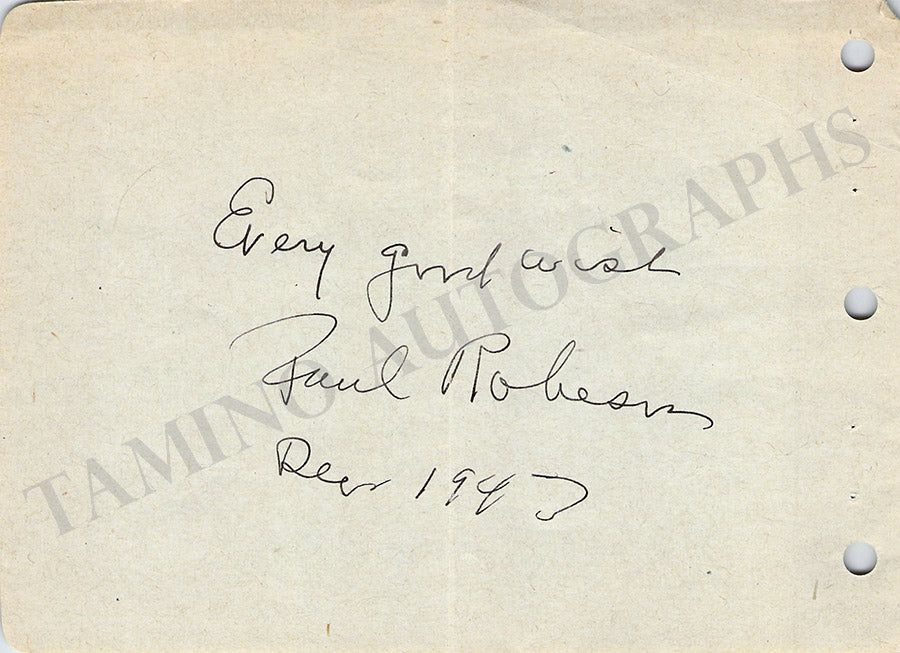 Every good wish
Paul Robeson
Dec 1943
TAMINO AUTOGRAPHS